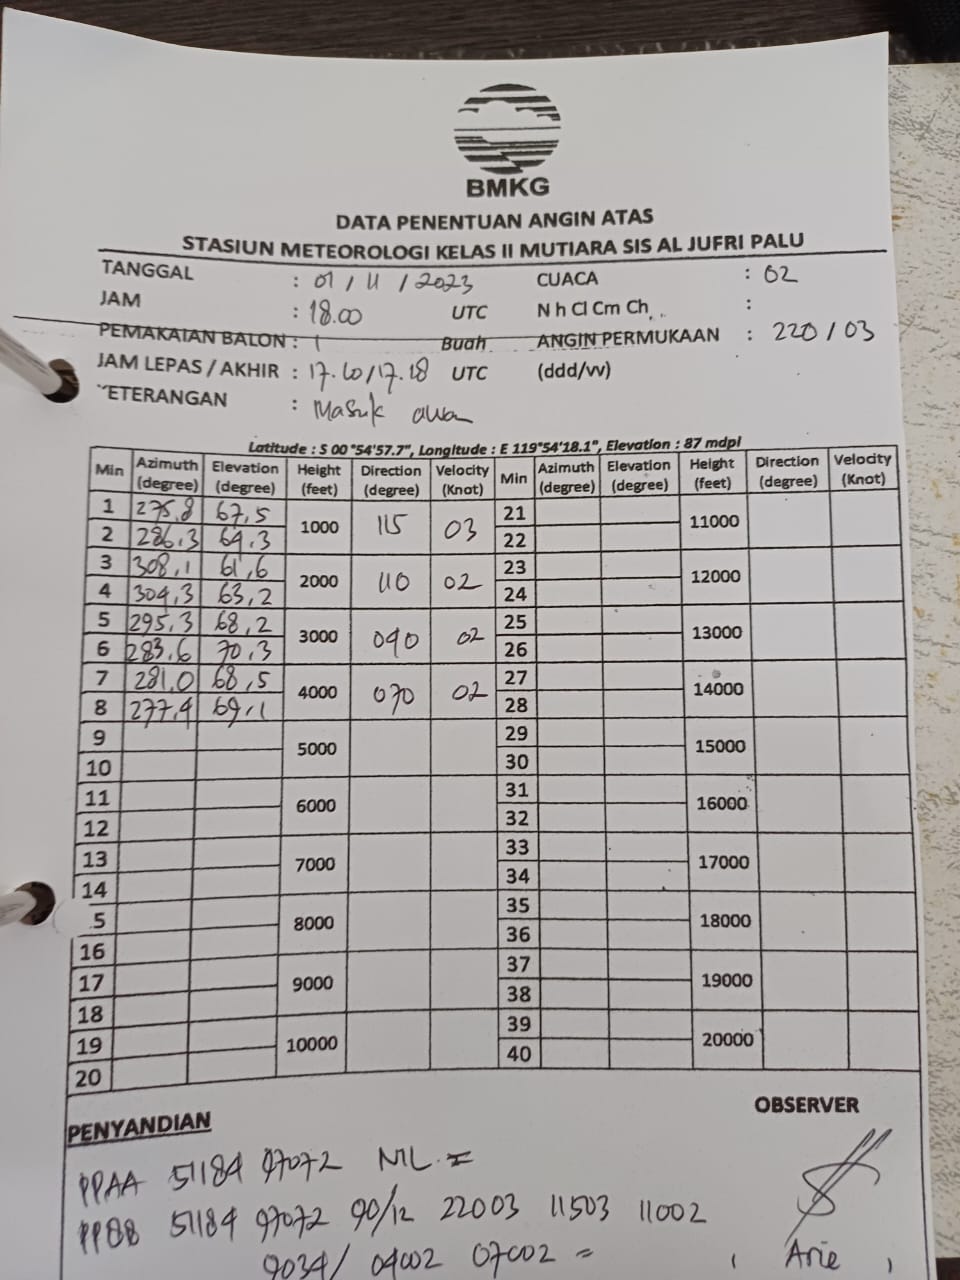 BMKG
DATA PENENTUAN ANGIN ATAS
STASIUN METEOROLOGI KELAS II MUTIARA SIS AL JUFRI PALU
TANGGAL : 01 / 11 / 2023 CUACA : 02
JAM : 18.00 UTC N h Cl Cm Ch :
PEMAKAIAN BALON : 1 Buah ANGIN PERMUKAAN : 220 / 03
JAM LEPAS / AKHIR : 17.10/17.18 UTC (ddd/vv)
KETERANGAN : Masuk awan
Latitude : S 00 °54'57.7", Longitude : E 119°54'18.1", Elevation : 87 mdpl
Min Azimuth (degree) Elevation (degree) Height (feet) Direction (degree) Velocity (Knot) Min Azimuth (degree) Elevation (degree) Height (feet) Direction (degree) Velocity (Knot)
1 275,8 67,5 1000 115 03 21 11000
2 286,3 64,3 22
3 308,1 61,6 2000 110 02 23 12000
4 304,3 63,2 24
5 295,3 68,2 3000 090 02 25 13000
6 283,6 70,3 26
7 281,0 68,5 4000 070 02 27 14000
8 277,4 69,1 28
9 5000 29 15000
10 30
11 6000 31 16000
12 32
13 7000 33 17000
14 34
5 8000 35 18000
16 36
17 9000 37 19000
18 38
19 10000 39 20000
20 40
PENYANDIAN OBSERVER
PPAA 51184 97072 NIL =
PPBB 51184 97072 90/12 22003 11503 11002
9034/ 09002 07002 =
( Arie )